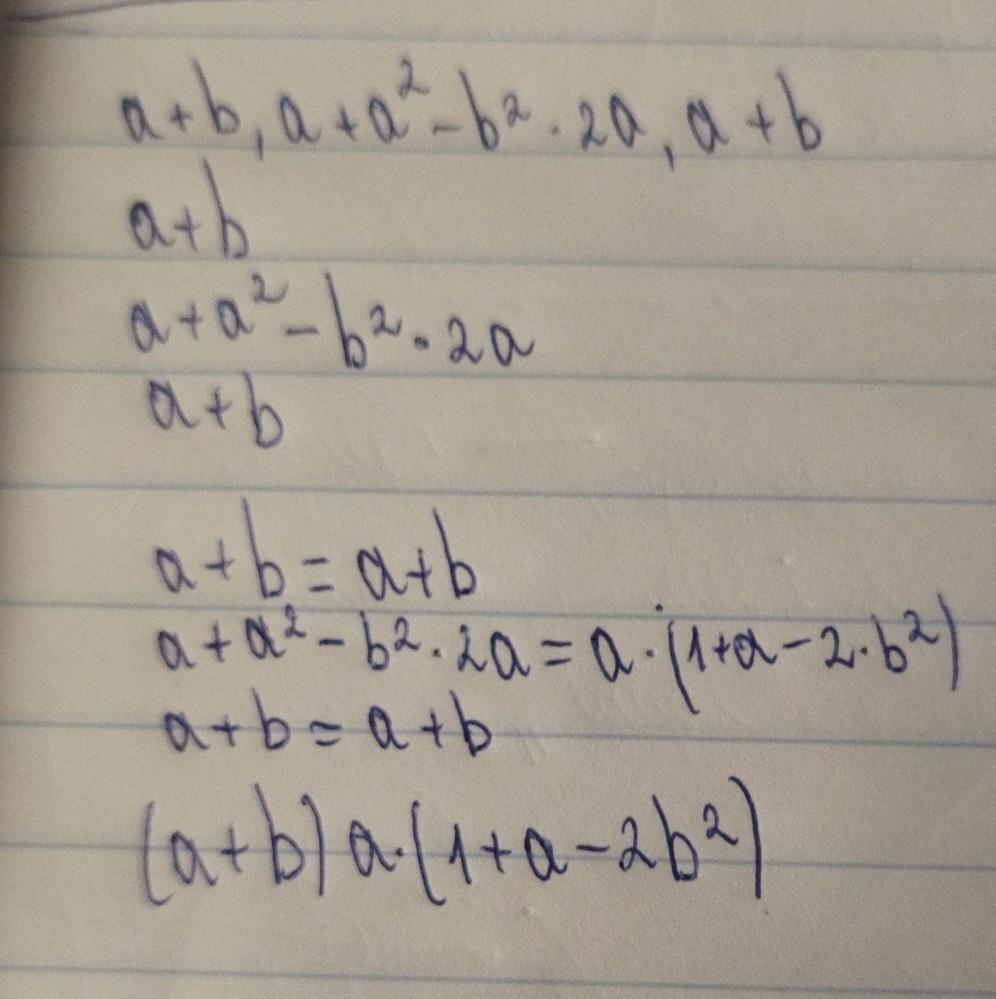 a+b, a+a²-b²·2a, a+b
a+b
a+a²-b²·2a
a+b
a+b=a+b
a+a²-b²·2a=a·(1+a-2·b²)
a+b=a+b
(a+b)a·(1+a-2b²)